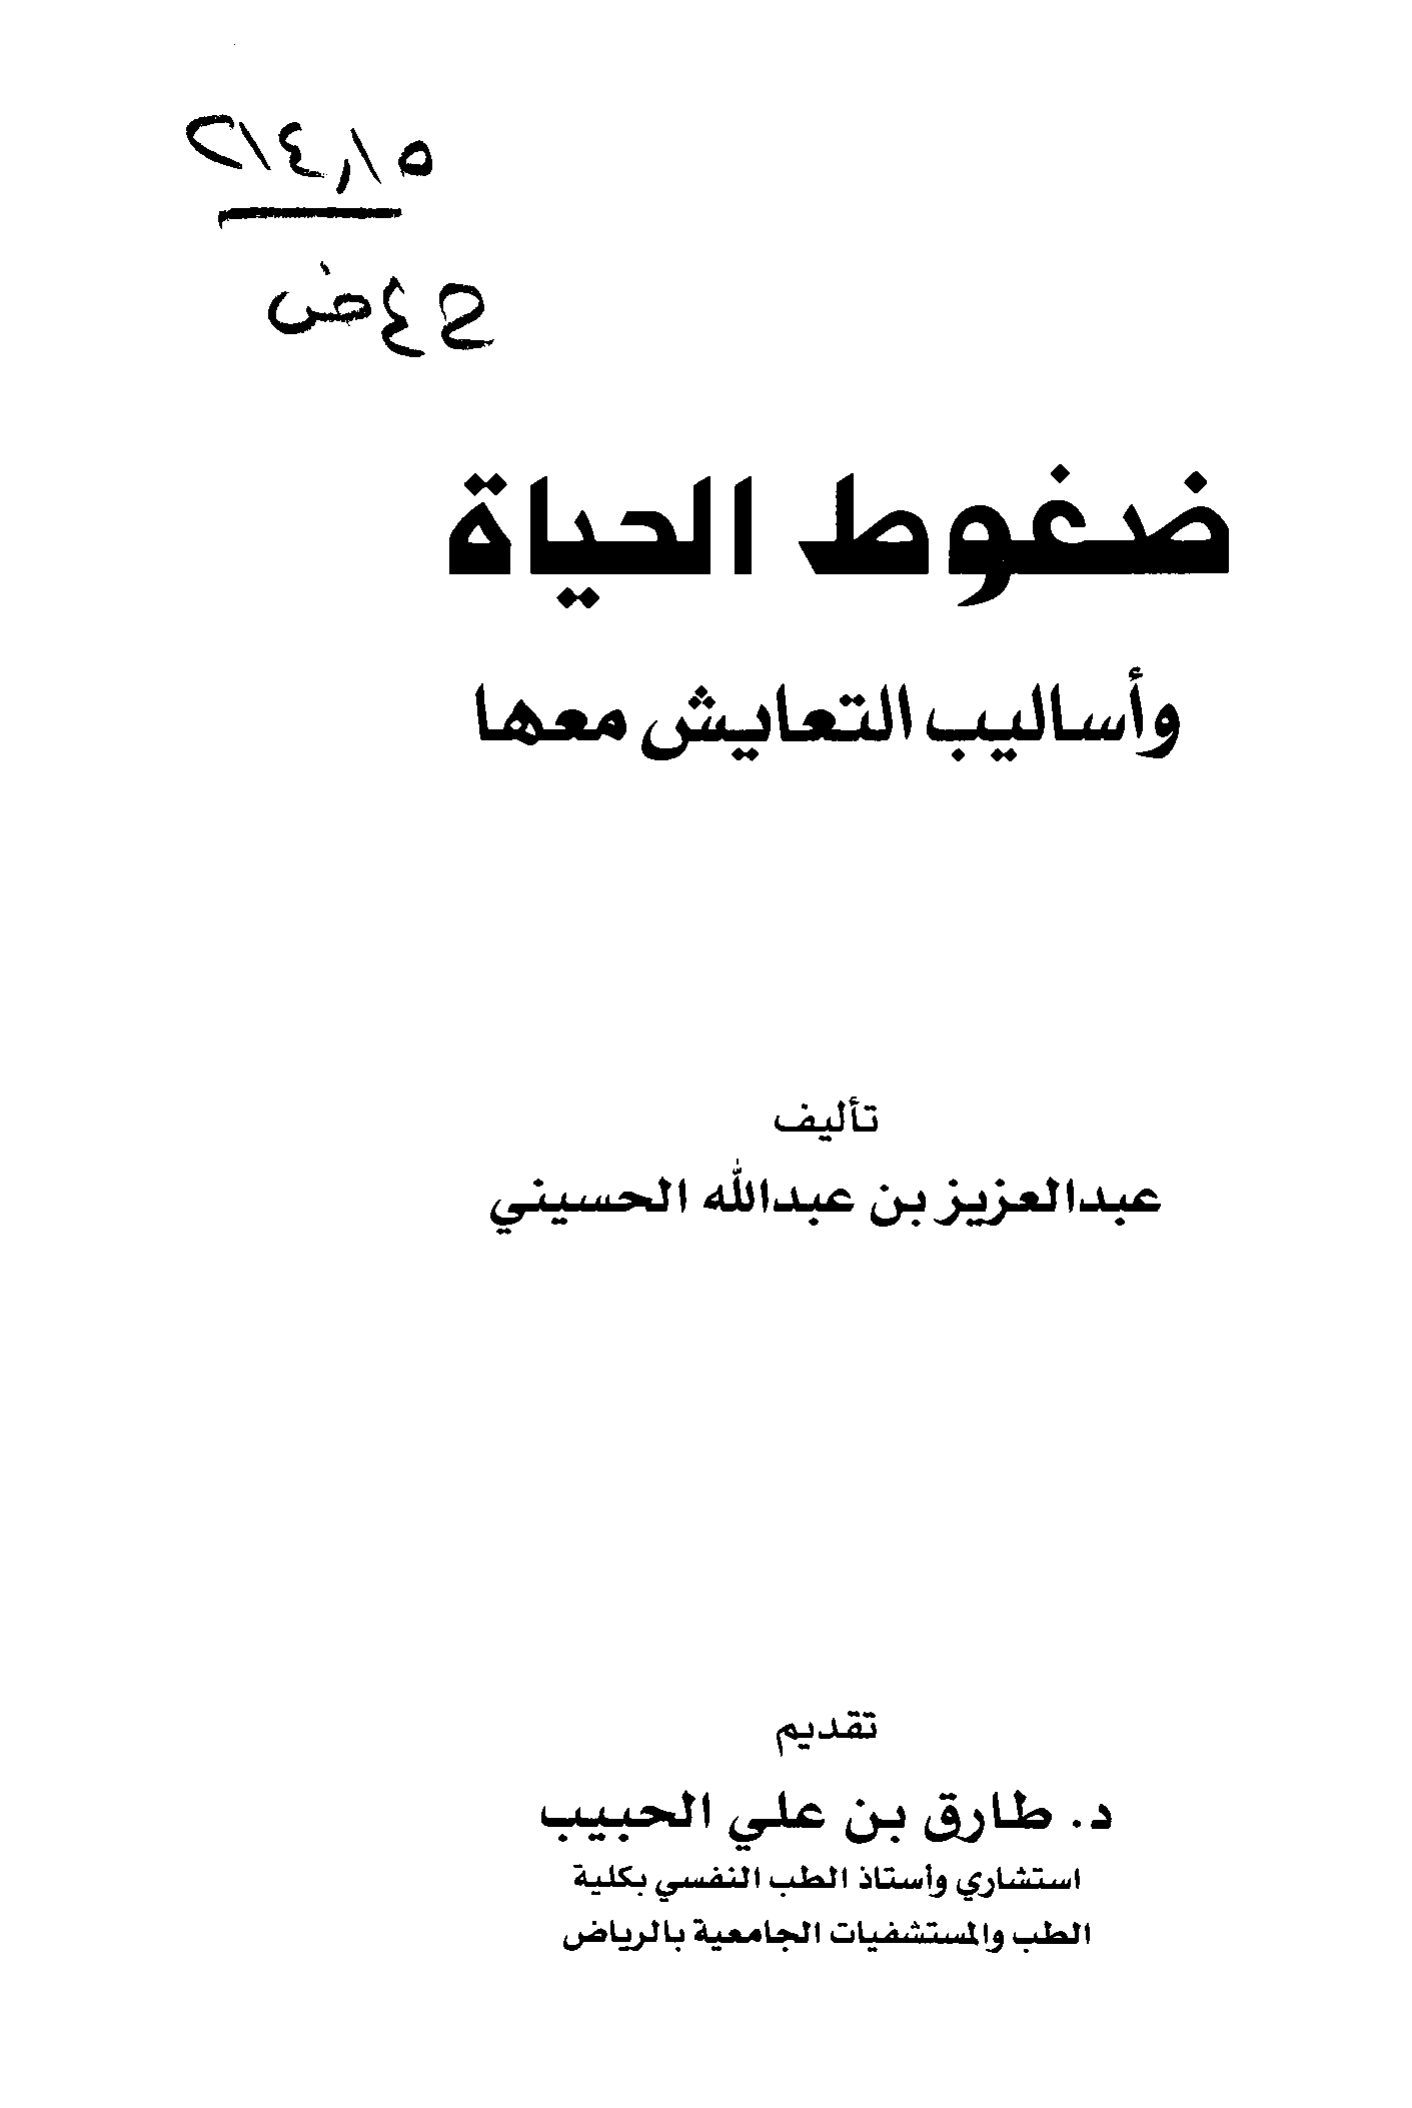 ٢١٤,١٥
ح٤ض
ضغوط الحياة
وأساليب التعايش معها
تأليف
عبدالعزيز بن عبدالله الحسيني
تقديم
د. طارق بن علي الحبيب
استشاري وأستاذ الطب النفسي بكلية
الطب والمستشفيات الجامعية بالرياض